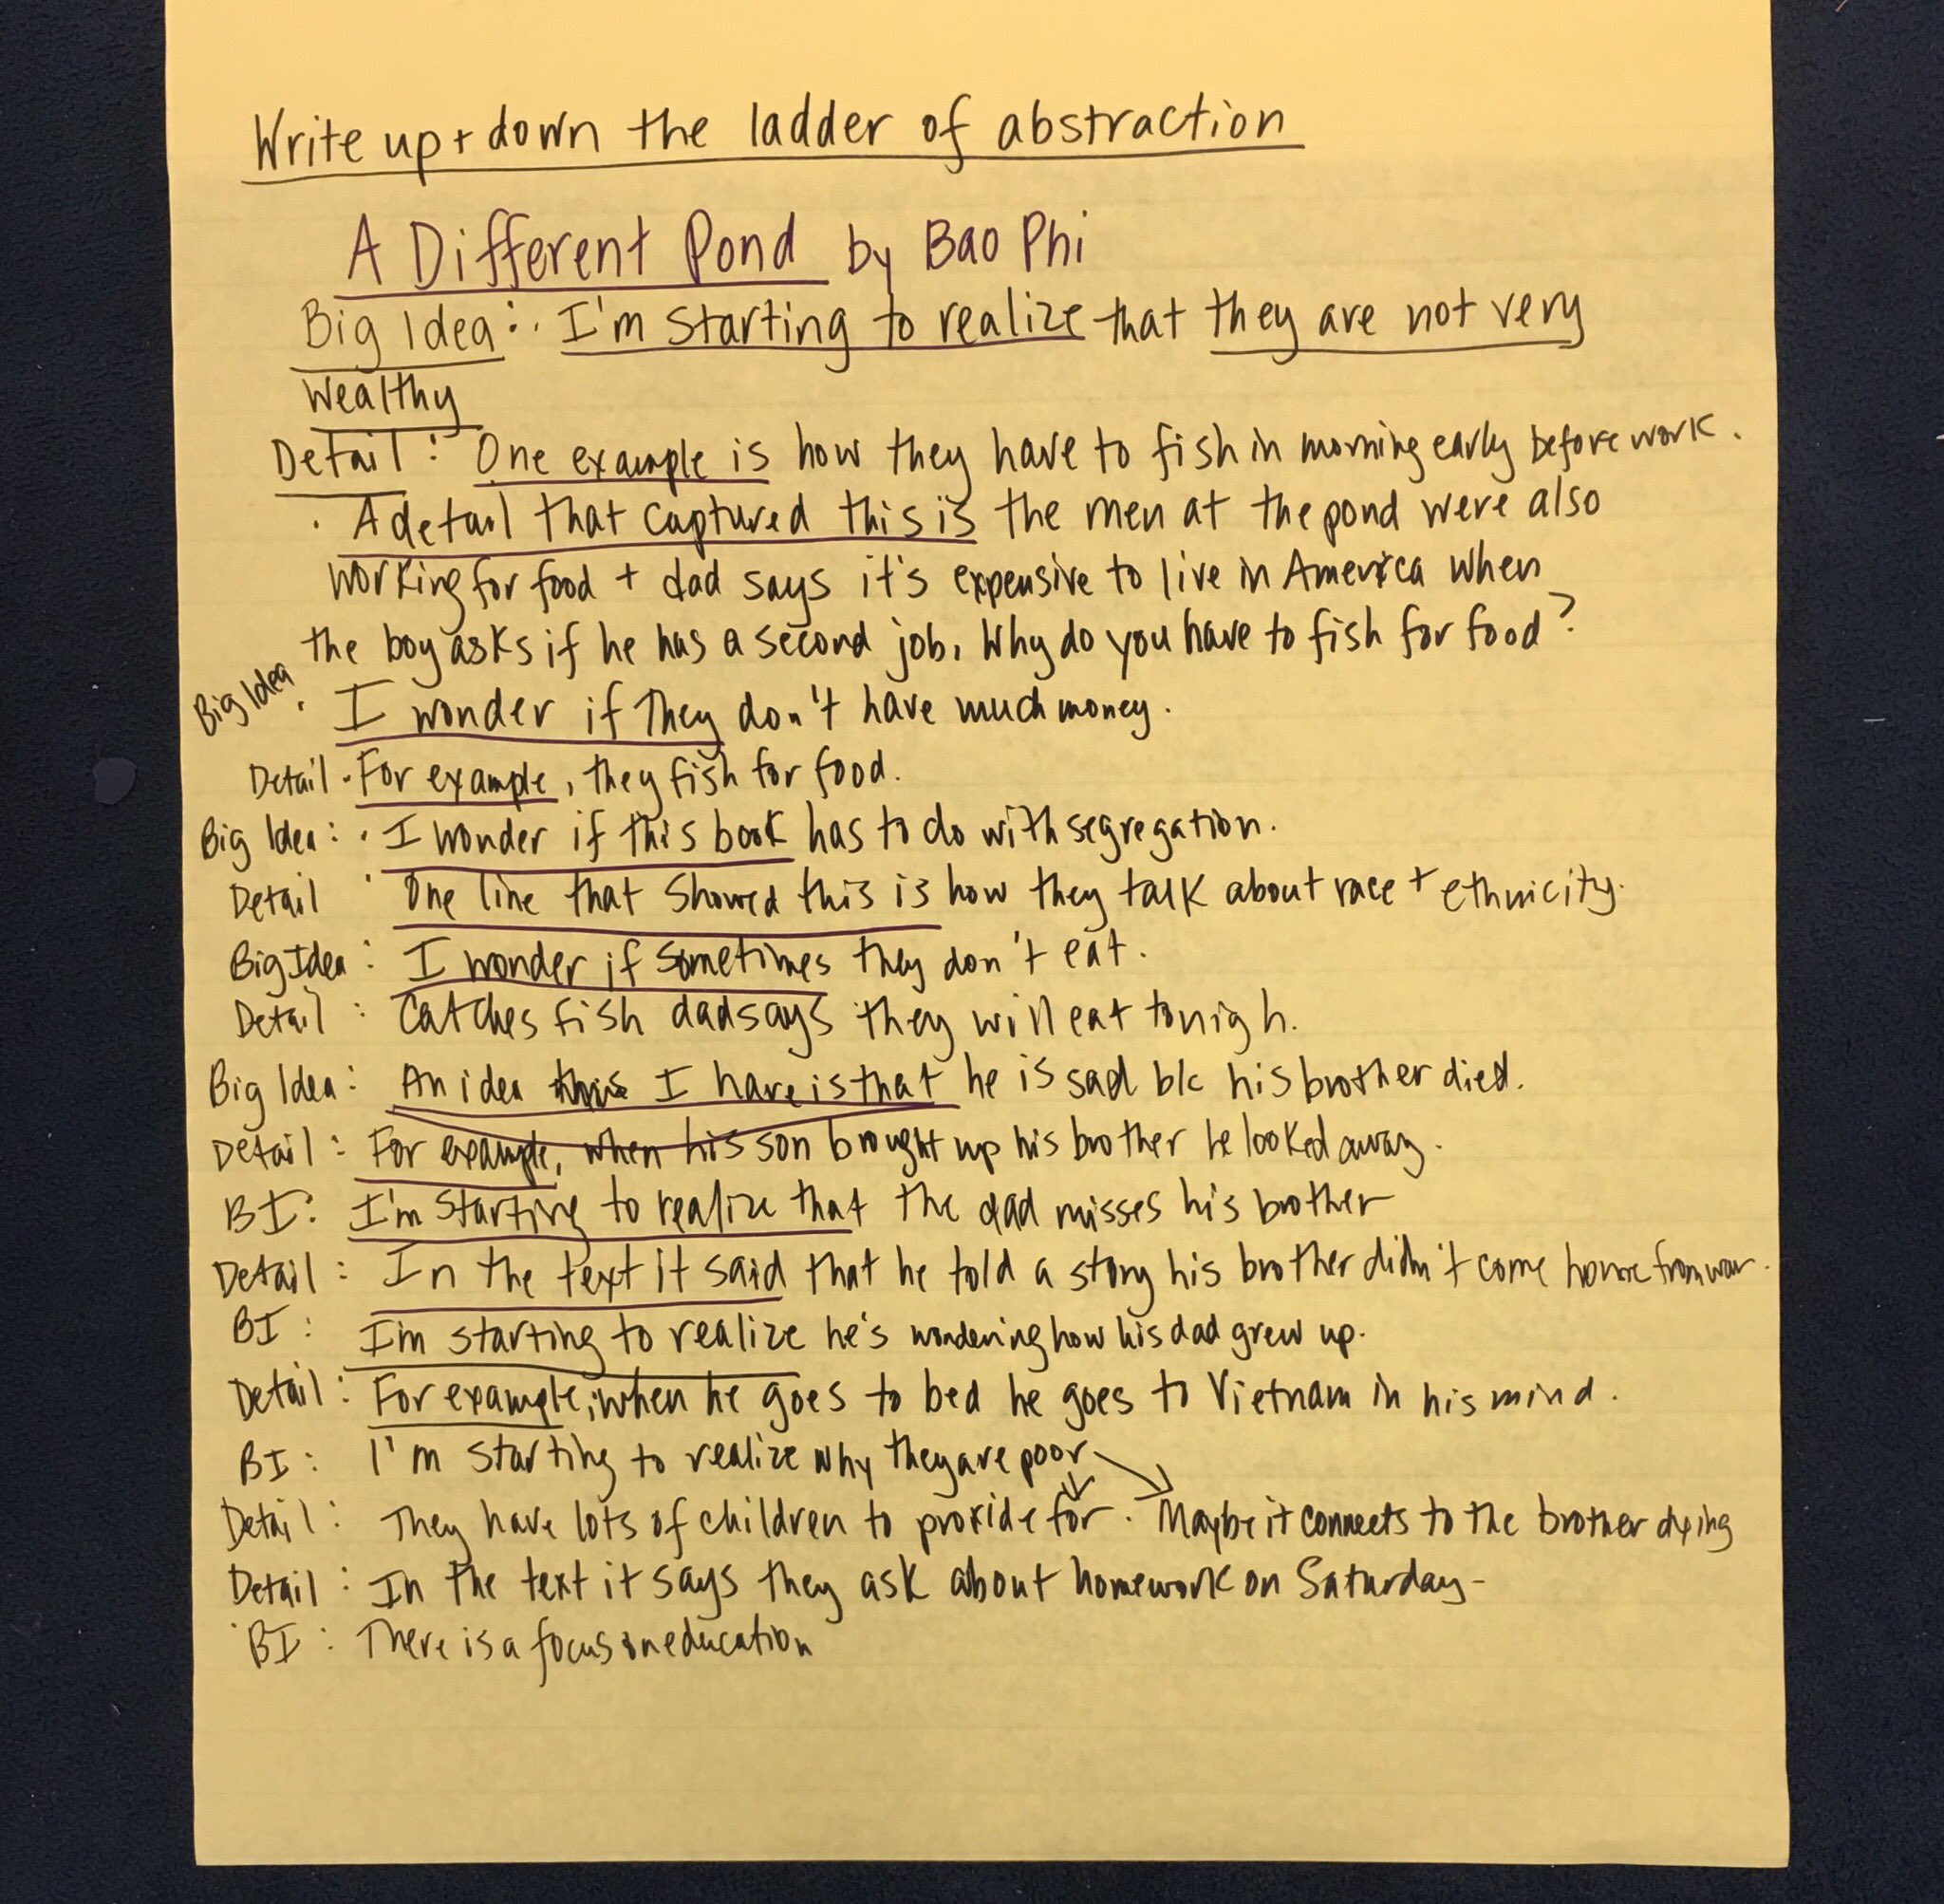 Write up + down the ladder of abstraction
A Different Pond by Bao Phi
Big Idea: I'm starting to realize that they are not very
wealthy
Detail: One example is how they have to fish in morning early before work.
· A detail that captured this is the men at the pond were also
working for food + dad says it's expensive to live in America when
the boy asks if he has a second job. Why do you have to fish for food?
Big Idea · I wonder if they don't have much money.
Detail · For example, they fish for food.
Big Idea: · I wonder if this book has to do with segregation.
Detail · One line that showed this is how they talk about race + ethnicity.
Big Idea: I wonder if sometimes they don't eat.
Detail: Catches fish dad says they will eat tonigh.
Big Idea: An idea this I have is that he is sad b/c his brother died.
Detail: For example, when his son brought up his brother he looked away.
BI: I'm starting to realize that the dad misses his brother
Detail: In the text it said that he told a story his brother didn't come home from war.
BI: I'm starting to realize he's wondering how his dad grew up.
Detail: For example, when he goes to bed he goes to Vietnam in his mind.
BI: I'm starting to realize why they are poor
Detail: They have lots of children to provide for. Maybe it connects to the brother dying
Detail: In the text it says they ask about homework on Saturday-
BI: There is a focus on education